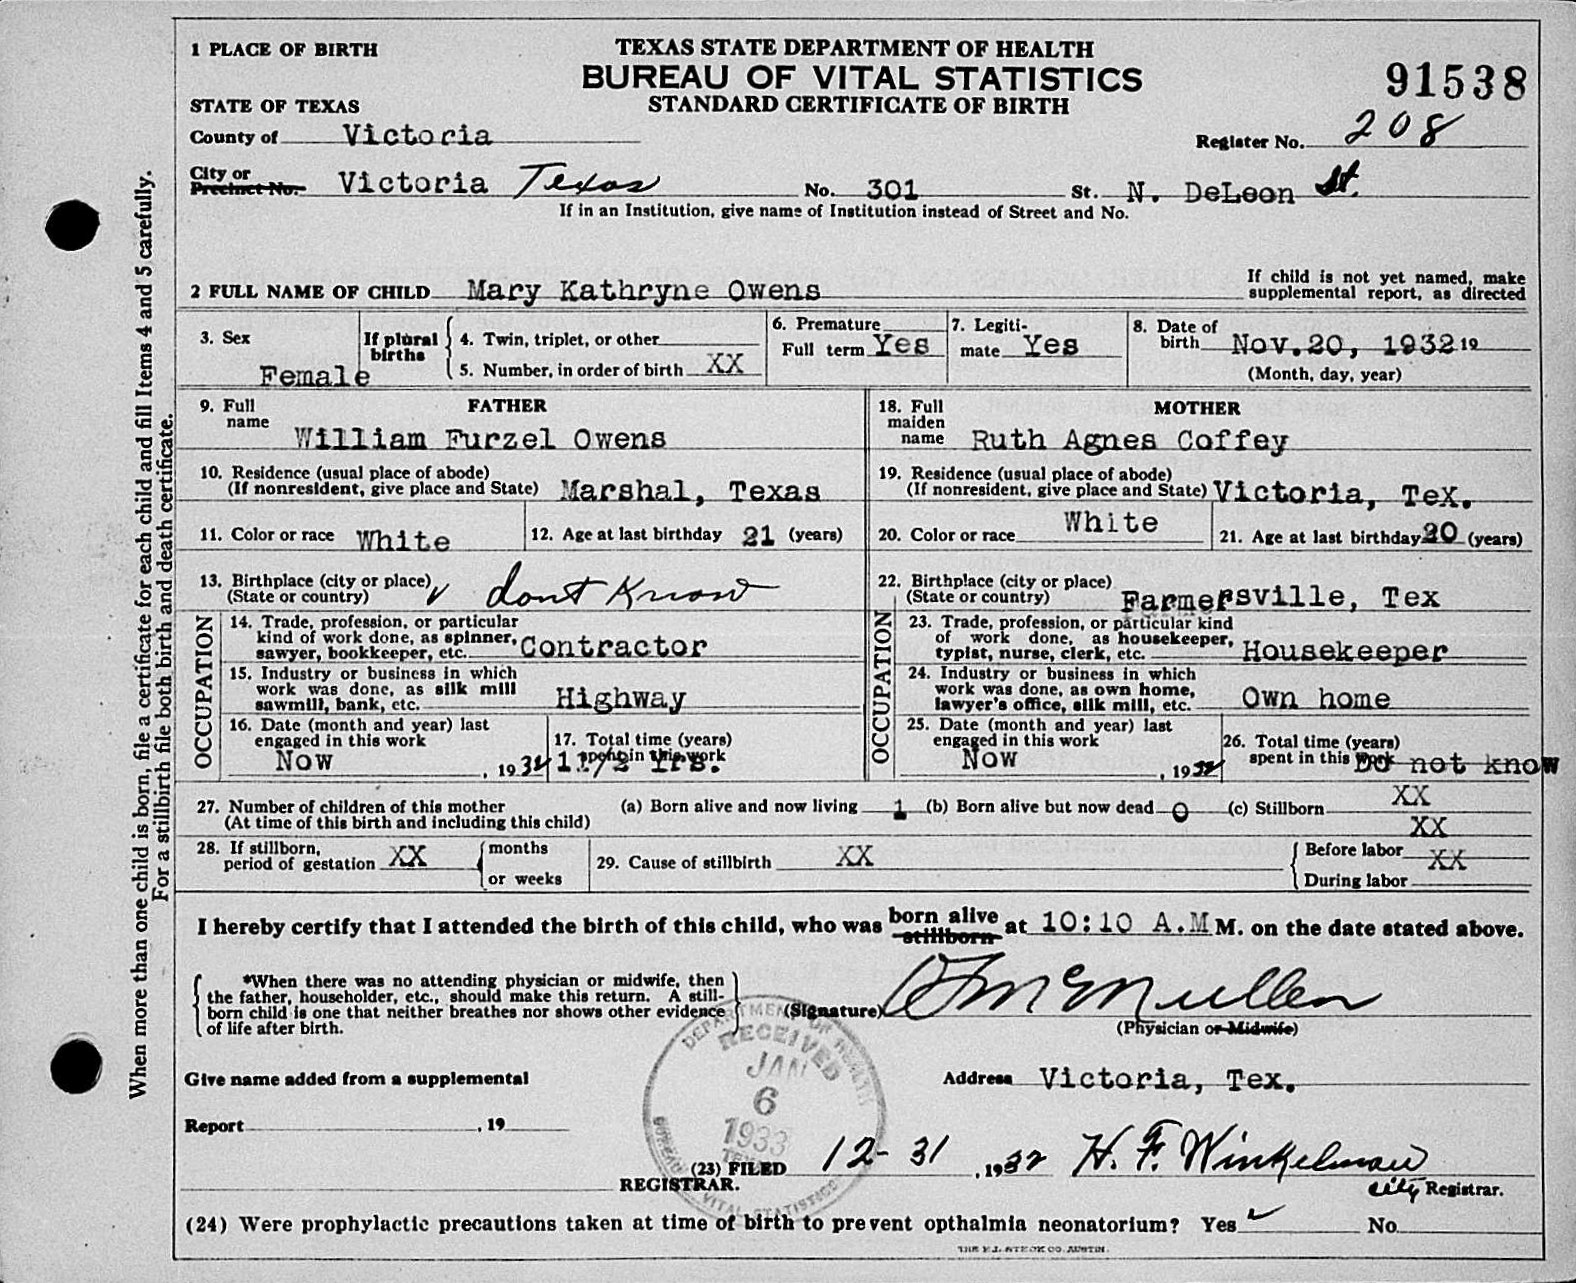 1 PLACE OF BIRTH
TEXAS STATE DEPARTMENT OF HEALTH
BUREAU OF VITAL STATISTICS
STANDARD CERTIFICATE OF BIRTH
91538
STATE OF TEXAS
County of Victoria
Register No. 208
City or
Precinct No. Victoria Texas No. 301 St. N. DeLeon St.
If in an Institution, give name of Institution instead of Street and No.
2 FULL NAME OF CHILD Mary Kathryne Owens
If child is not yet named, make
supplemental report, as directed
3. Sex Female
If plural births
4. Twin, triplet, or other
5. Number, in order of birth XX
6. Premature
Full term Yes
7. Legiti-
mate Yes
8. Date of
birth Nov.20, 1932 19
(Month, day, year)
9. Full name FATHER
William Furzel Owens
18. Full maiden name MOTHER
Ruth Agnes Coffey
10. Residence (usual place of abode)
(If nonresident, give place and State) Marshal, Texas
19. Residence (usual place of abode)
(If nonresident, give place and State) Victoria, TeX.
11. Color or race White
12. Age at last birthday 21 (years)
20. Color or race White
21. Age at last birthday 20 (years)
13. Birthplace (city or place)
(State or country) dont Know
22. Birthplace (city or place)
(State or country) Farmersville, Tex
OCCUPATION
14. Trade, profession, or particular
kind of work done, as spinner,
sawyer, bookkeeper, etc. Contractor
15. Industry or business in which
work was done, as silk mill
sawmill, bank, etc. Highway
16. Date (month and year) last
engaged in this work
Now, 1932
17. Total time (years)
spent in this work
1 1/2 Yrs.
OCCUPATION
23. Trade, profession, or particular kind
of work done, as housekeeper,
typist, nurse, clerk, etc. Housekeeper
24. Industry or business in which
work was done, as own home,
lawyer's office, silk mill, etc. Own home
25. Date (month and year) last
engaged in this work
Now, 1932
26. Total time (years)
spent in this work Do not know
27. Number of children of this mother
(At time of this birth and including this child)
(a) Born alive and now living 1 (b) Born alive but now dead 0 (c) Stillborn XX
XX
28. If stillborn,
period of gestation XX
months
or weeks
29. Cause of stillbirth XX
Before labor XX
During labor
I hereby certify that I attended the birth of this child, who was born alive stillborn at 10:10 A.M M. on the date stated above.
*When there was no attending physician or midwife, then
the father, householder, etc., should make this return. A still-
born child is one that neither breathes nor shows other evidence
of life after birth.
(Signature) McMullen
(Physician or Midwife)
Give name added from a supplemental
Address Victoria, Tex.
Report , 19
DEPARTMENT OF HEALTH
RECEIVED
JAN
6
1933
TEXAS
BUREAU VITAL STATISTICS
(23) FILED 12-31, 1932 H. F. Winkelman
REGISTRAR.
City Registrar.
(24) Were prophylactic precautions taken at time of birth to prevent opthalmia neonatorium? Yes ✓ No
When more than one child is born, file a certificate for each child and fill Items 4 and 5 carefully.
For a stillbirth file both birth and death certificate.